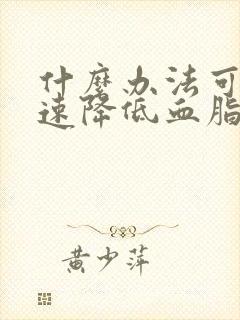 什麽办法可
速降低血脂
黄少萍